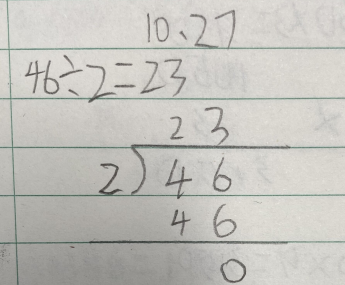 10、27
46÷2=23
23
2)46
46
0